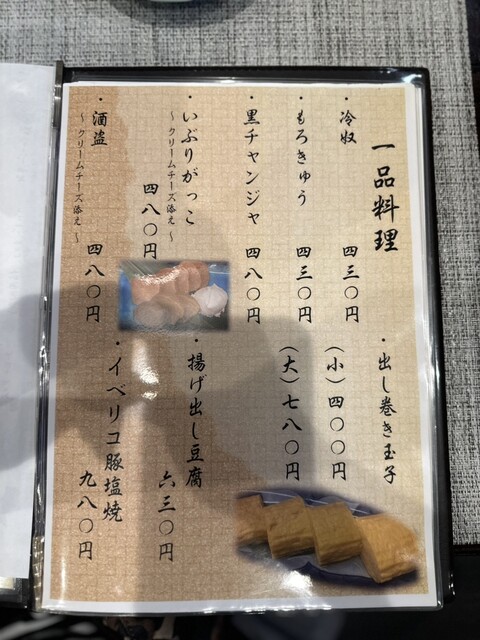 一品料理
・冷奴
四三〇円
・もろきゅう
四三〇円
・黒チャンジャ
四八〇円
・いぶりがっこ
～クリームチーズ添え～
四八〇円
・酒盗
～クリームチーズ添え～
四八〇円
・出し巻き玉子
(小)四〇〇円
(大)七八〇円
・揚げ出し豆腐
六三〇円
・イベリコ豚塩焼
九八〇円